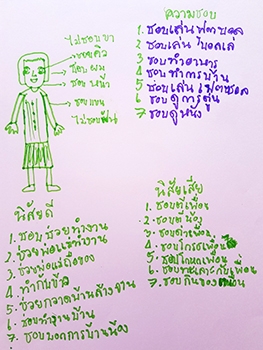 ไม่ชอบขา
ชอบคิ้ว
ชอบ ผม
ชอบ หน้า
ชอบแขน
ไม่ชอบฟัน
ความชอบ
1. ชอบเล่นฟุตบอล
2. ชอบเล่น
3. ชอบทำอาหาร
4. ชอบทำการบ้าน
5. ชอบเล่น
6. ชอบดูการ์ตูน
7. ชอบดูหนัง
นิสัยดี
1. ชอบช่วยทำงาน
2. ช่วยพ่อแม่ทำงาน
3. ช่วยพ่อแม่ซื้อของ
4. ทำกับข้าว
5. ช่วยกวาดบ้านล้างจาน
6. ชอบทำงานบ้าน
7. ชอบการบ้านน้อง
นิสัยเสีย
1. ชอบตีเพื่อน
2. ชอบตีน้อง
3. ชอบด่าเพื่อน
4. ชอบโกรธเพื่อน
5. ชอบโกหกเพื่อน
6. ชอบทะเลาะกับเพื่อน
7. ชอบกินของ